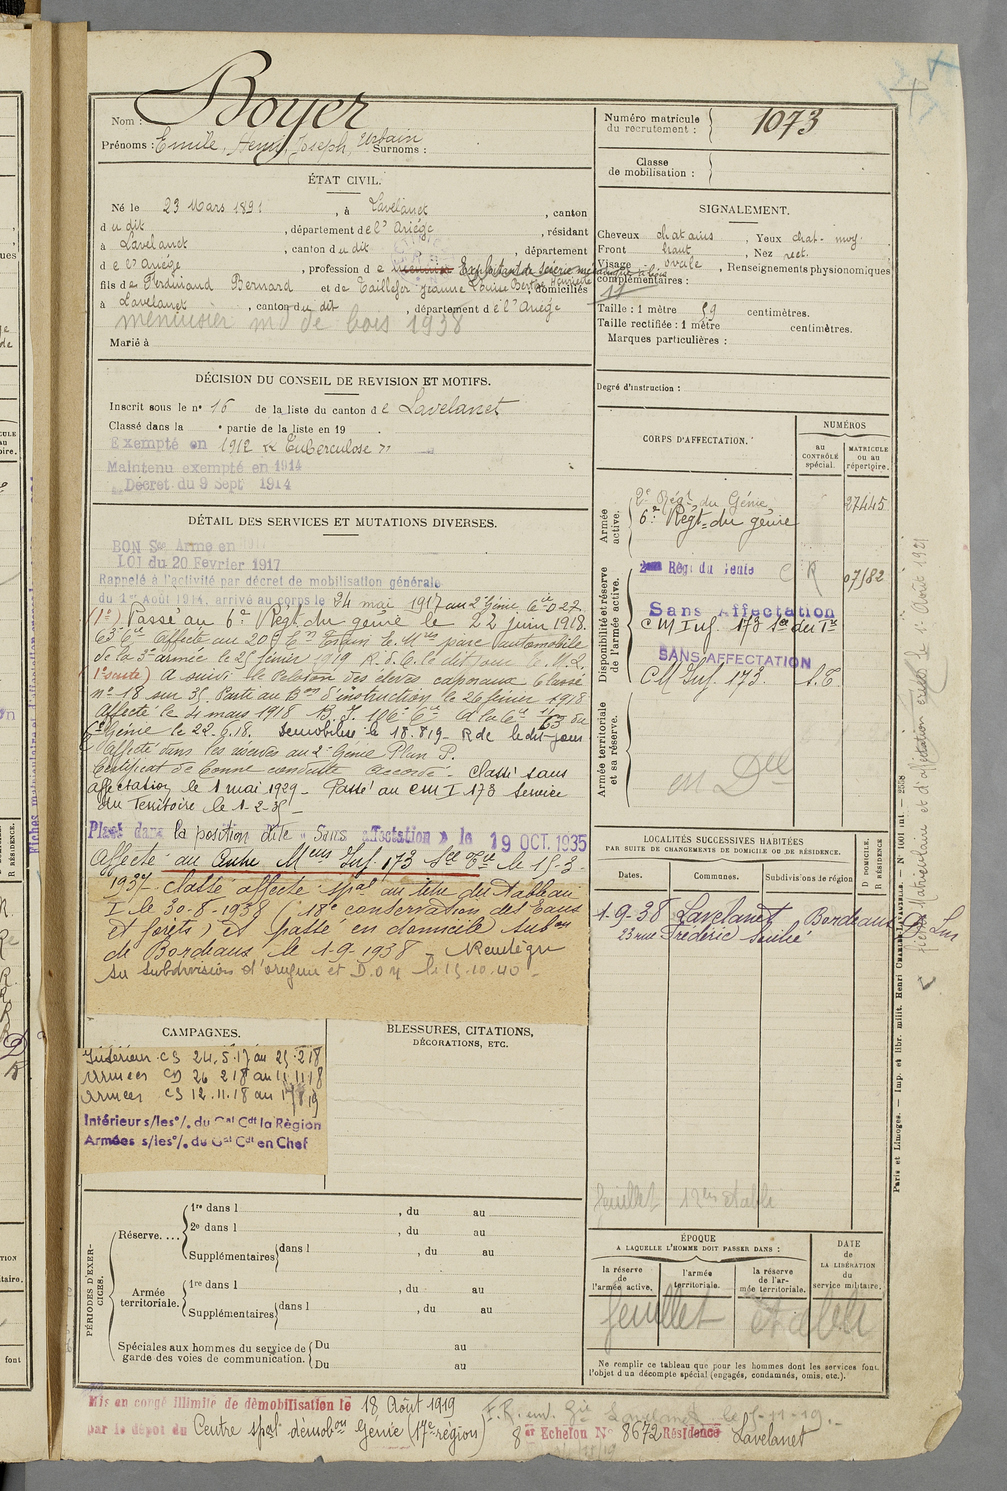 Nom : Boyer
Prénoms : Emile, Henri, Joseph, Urbain Surnoms :
Numéro matricule du recrutement : 1073
Classe de mobilisation :
ÉTAT CIVIL.
Né le 23 Mars 1891, à Lavelanet, canton
du dit, département de l'Ariège, résidant
à Lavelanet, canton du dit, département
de l'Ariège, profession de menuisier Exploitant de scierie mécanique
fils de Ferdinand Bernard et de Taillefer Jeanne Louise Berthe Henriette domiciliés
à Lavelanet, canton du dit, département de l'Ariège
menuisier md de bois 1938
Marié à
SIGNALEMENT.
Cheveux chatains, Yeux chat. moy.
Front haut, Nez rect.
Visage ovale, Renseignements physionomiques
complémentaires :
Taille : 1 mètre 59 centimètres.
Taille rectifiée : 1 mètre centimètres.
Marques particulières :
Degré d'instruction :
DÉCISION DU CONSEIL DE REVISION ET MOTIFS.
Inscrit sous le n° 16 de la liste du canton de Lavelanet
Classé dans la partie de la liste en 19 .
Exempté en 1912 Tuberculose
Maintenu exempté en 1914
Décret du 9 Sept 1914
CORPS D'AFFECTATION.
NUMÉROS
au CONTRÔLE spécial.
MATRICULE ou au répertoire.
Armée active.
2e Régt du Génie 27445
6e Régt du génie
Disponibilité et réserve de l'armée active.
2me Régt du Génie CR 07582
Sans Affectation
CM Inf. 173 Sce du Tre
SANS AFFECTATION
CM Inf. 173. S.T.
Armée territoriale et sa réserve.
en Dce
DÉTAIL DES SERVICES ET MUTATIONS DIVERSES.
BON Sce Armé en
LOI du 20 Fevrier 1917
Rappelé à l'activité par décret de mobilisation générale
du 1er Août 1914, arrivé au corps le 24 mai 1917 au 2e Génie Cie D 27.
(1e) Passé au 6e Régt du génie le 22 juin 1918.
63e Cie Affecté au 20e parc automobile
de la 3e armée le 25 février 1919 R. d. C. le dit jour
(1 suite) A suivi le Peloton des élèves caporaux Classé
n° 18 sur 35. Parti au Bon d'instruction le 26 février 1918
Affecté le 4 mars 1918 à la Cie 63 du
6e Génie le 22.6.18. Démobilisé le 18.8.19 - R de le dit jour
Affecté dans les réserves au 2e Génie Plan P.
Certificat de bonne conduite accordé. Classé sans
affectation le 1 mai 1929 - Passé au CM I 173 Service
du Territoire le 1-2-35
Placé dans la position dite « Sans affectation » le 19 OCT. 1935
Affecté au Centre Mens Inf. 173 Sce Tre le 15-3-
1937 - classé affecté spal au titre du tableau
I le 30-8-1938 18e conservation des Eaux
et forêts et passé en domicile subon
de Bordeaux le 1-9-1938 - Réintégré
sa subdivision d'origine et D.O.M le 15.10.40 -
LOCALITÉS SUCCESSIVES HABITÉES
PAR SUITE DE CHANGEMENTS DE DOMICILE OU DE RÉSIDENCE.
Dates.
Communes.
Subdivisions de région
D DOMICILE.
R RÉSIDENCE
1-9-38 Lavelanet Bordeaux D.
23 rue Frédéric Soulié
feuillet 12 établi
CAMPAGNES.
Intérieur CS 24.5.17 au 25.2.18
Armées CD 26 2 18 au 11.11.18
Armées CS 12.11.18 au 17 8 19
Intérieur s/les %. du Gal Cdt la Région
Armées s/les %. du Gal Cdt en Chef
BLESSURES, CITATIONS,
DÉCORATIONS, ETC.
PÉRIODES D'EXERCICES.
Réserve.... 1re dans l , du au
2e dans l , du au
Supplémentaires dans l , du au
Armée territoriale. 1re dans l , du au
Supplémentaires dans l , du au
Spéciales aux hommes du service de garde des voies de communication. Du au
Du au
ÉPOQUE
A LAQUELLE L'HOMME DOIT PASSER DANS :
la réserve de l'armée active.
l'armée territoriale.
la réserve de l'armée territoriale.
DATE de LA LIBÉRATION du service militaire.
feuillet établi
Ne remplir ce tableau que pour les hommes dont les services font
l'objet d'un décompte spécial (engagés, condamnés, omis, etc.).
Mis en congé illimité de démobilisation le 18 Août 1919
par le dépôt du Centre spal démobon Génie (17e région)
8er Echelon N° 8672 Résidence Lavelanet
Paris et Limoges. — Imp. et libr. milit. Henri CHARLES-LAVAUZELLE. — N° 1001